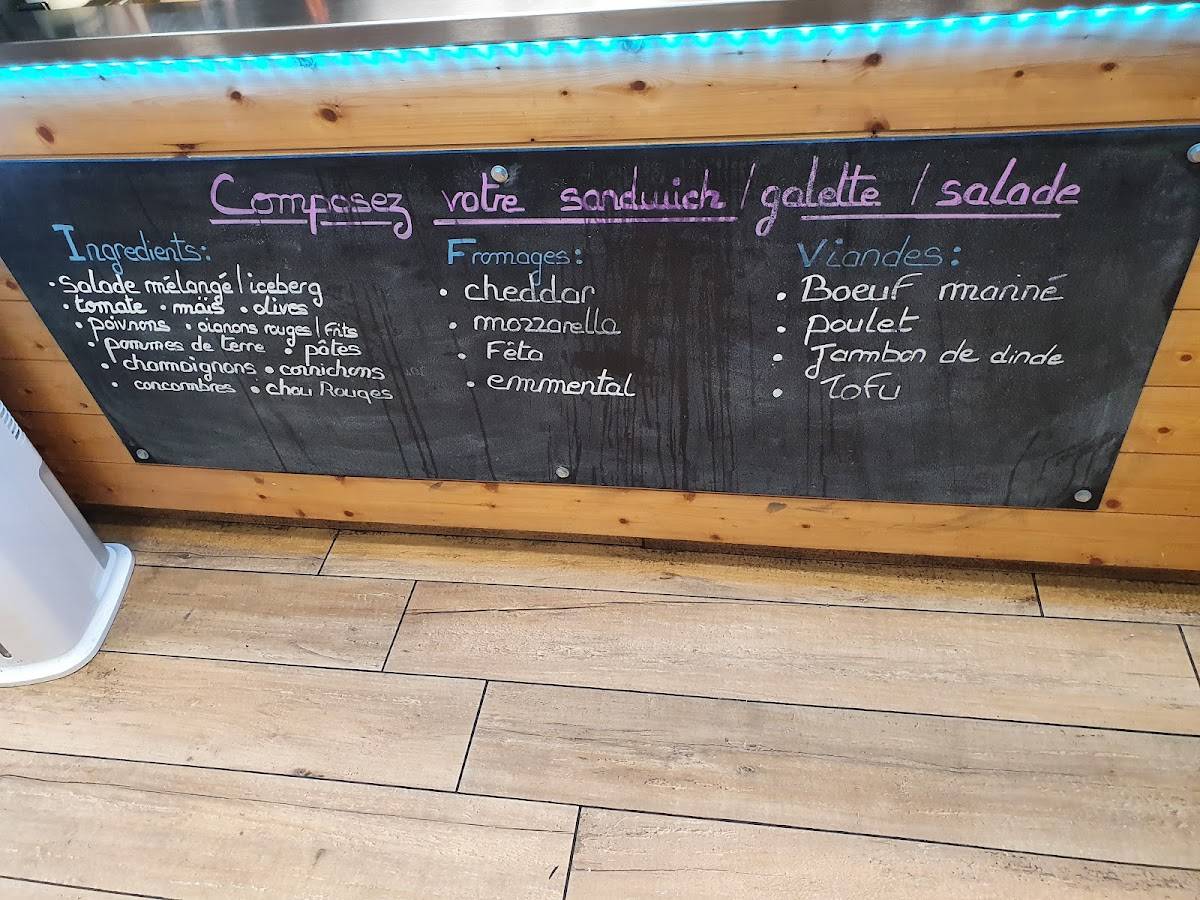 Composez votre sandwich / galette / salade
Ingredients:
• salade mélangé / iceberg
• tomate • maïs • olives
• poivrons • oignons rouges / frits
• pommes de terre • pâtes
• champignons • cornichons
• concombres • chou Rouges
Fromages:
• cheddar
• mozzarella
• Fêta
• emmental
Viandes:
• Boeuf mariné
• poulet
• Jambon de dinde
• Tofu